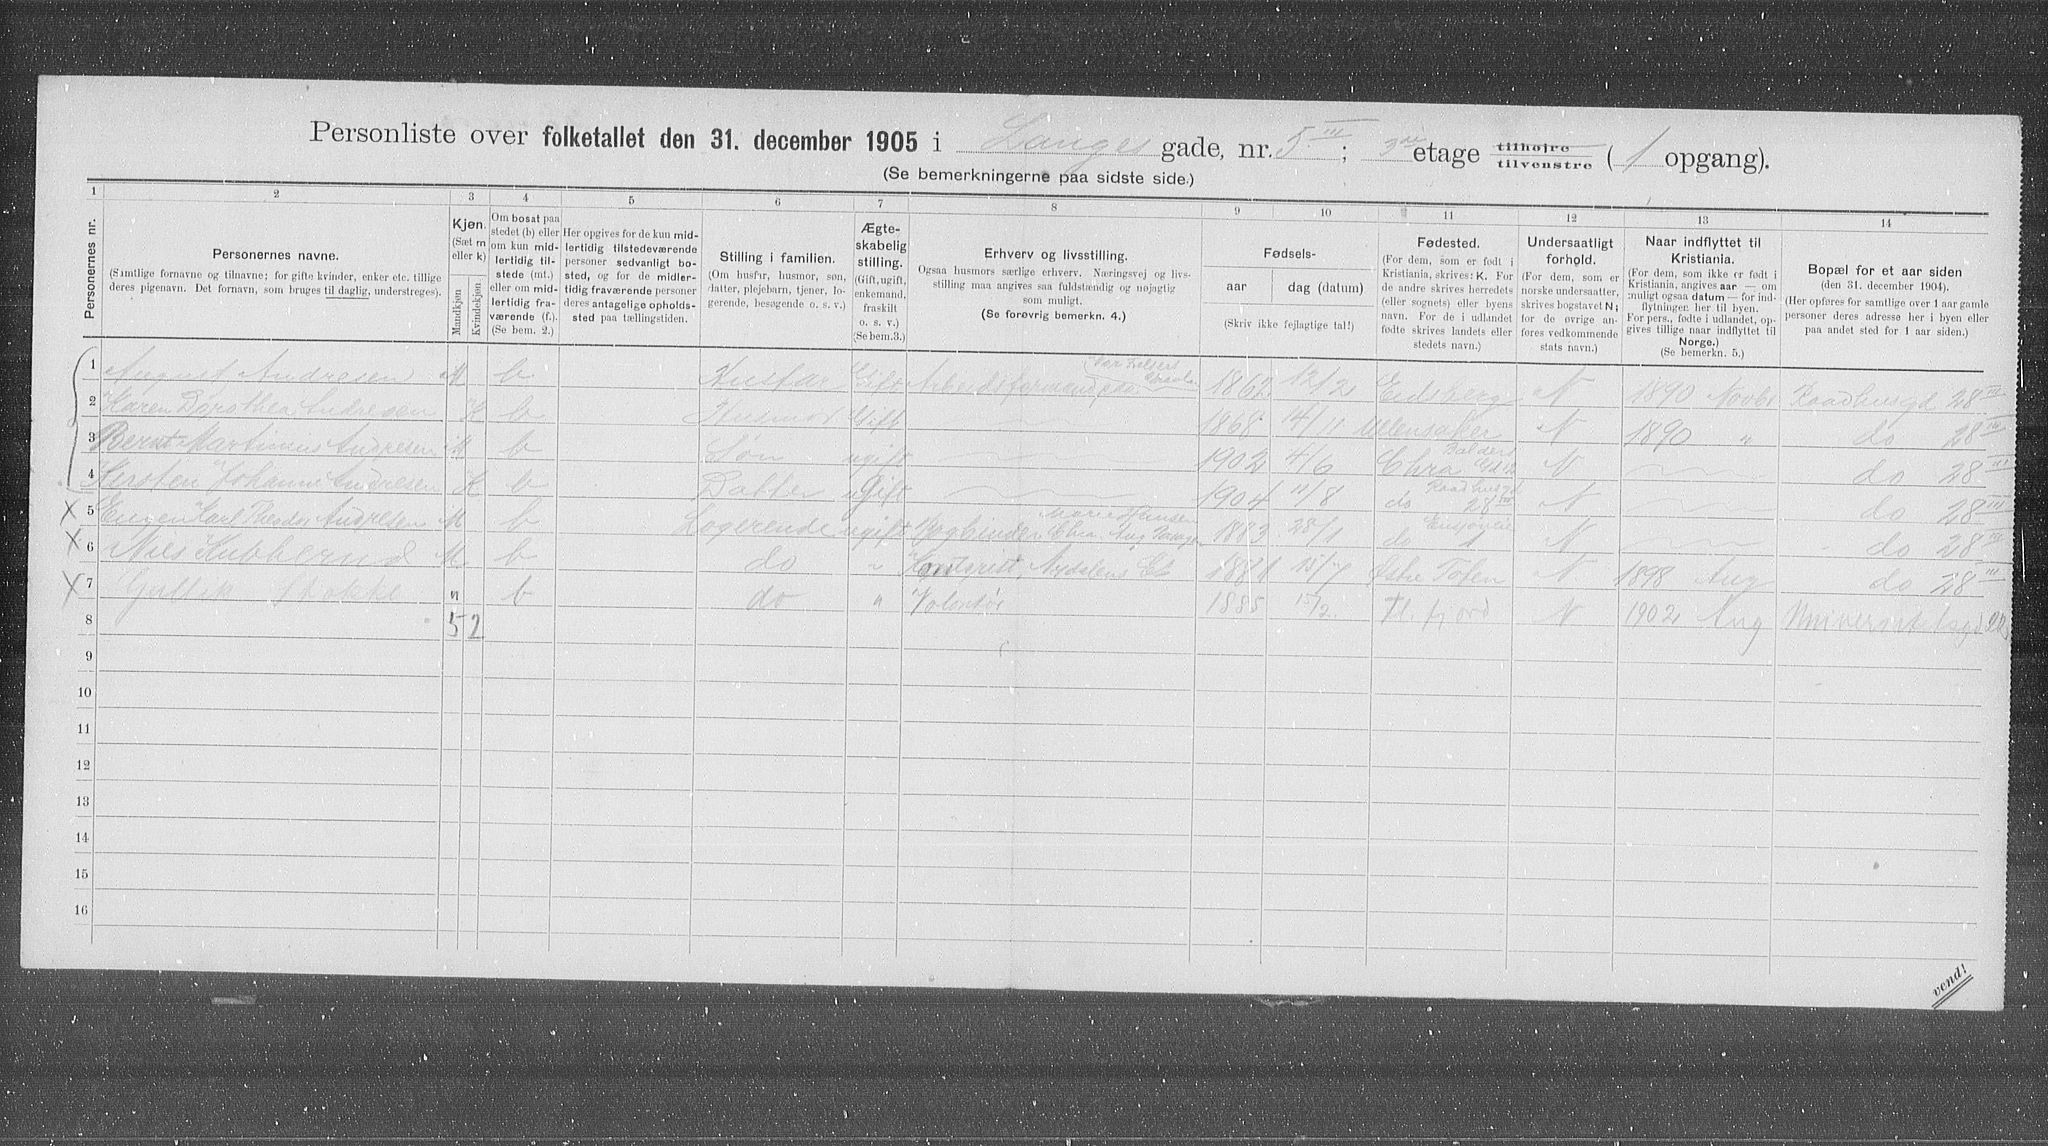 Personliste over folketallet den 31. december 1905 i Langes gade, nr. 5 III ; 3die etage tilhøjre tilvenstre ( 1 opgang).
(Se bemerkningerne paa sidste side.)
1 2 3 4 5 6 7 8 9 10 11 12 13 14
Personernes nr.
Personernes navne.
(Samtlige fornavne og tilnavne; for gifte kvinder, enker etc. tillige
deres pigenavn. Det fornavn, som bruges til daglig, understreges).
Kjøn.
(Sæt m
eller k)
Mandkjøn
Kvindekjøn
Om bosat paa
stedet (b) eller
om kun mid-
lertidig til-
stede (mt.)
eller om mid-
lertidig fra-
værende (f.).
(Se bem. 2.)
Her opgives for de kun mid-
lertidig tilstedeværende
personer sedvanlig bo-
sted, og for de midler-
tidig fraværende personer
deres antagelige opholds-
sted paa tællingstiden.
Stilling i familien.
(Om husfar, husmor, søn,
datter, plejebarn, tjener, lo-
gerende, besøgende o. s. v.)
Ægte-
skabelig
stilling.
(Gift, ugift,
enkemand,
fraskilt
o. s. v.)
(Se bem.3.)
Erhverv og livsstilling.
Ogsaa husmors særlige erhverv. Næringsvej og livs-
stilling maa angives saa fuldstændig og nøjagtig
som muligt.
(Se forøvrig bemerkn. 4.)
Fødsels-
aar
dag (datum)
(Skriv ikke fejlagtige tal!)
Fødested.
(For dem, som er født i
Kristiania, skrives: K. For
de andre skrives herredets
(eller sognets) eller byens
navn. For de i udlandet
fødte skrives landets eller
stedets navn.)
Undersaatligt
forhold.
(For dem, som er
norske undersaatter,
skrives bogstavet N;
for de øvrige an-
føres vedkommende
stats navn.)
Naar indflyttet til
Kristiania.
(For dem, som ikke er født i
Kristiania, angives aar — om
muligt ogsaa datum — for ind-
flytningen her til byen.
For pers., fødte i udlandet, op-
gives tillige naar indflyttet til
Norge.)
(Se bemerkn. 5.)
Bopæl for et aar siden
(den 31. december 1904).
(Her opføres for samtlige over 1 aar gamle
personer deres adresse her i byen eller
paa andet sted for 1 aar siden.)
1 August Andresen M b Husfar Gift Arbeidsformand paa 1862 12/2 Eidsberg N 1890 Novbr Raadhusgd 28 III
2 Karen Dorothea Andresen K b Husmor Gift 1868 14/11 Ullensaker N 1890 " do 28 III
3 Bernt Martinius Andresen M b Søn ugift 1902 4/6 Chra N do 28 III
4 Kirsten Johanne Andresen K b Datter ugift 1904 11/8 do Raadhusgd 28 N do 28 III
5 Eugen Karl Theodor Andresen M b Logerende ugift Bogbinder 1883 28/1 do N do 28 III
6 Nils Kubberud M b do " Kontorist, Nydalens Co 1881 15/7 Østre Toten N 1898 Aug do 28 III
7 Gullik Stokke m b do " Volontør 1885 15/2 N 1902 Aug Universitetsgd
8 5 2
9
10
11
12
13
14
15
16
vend!